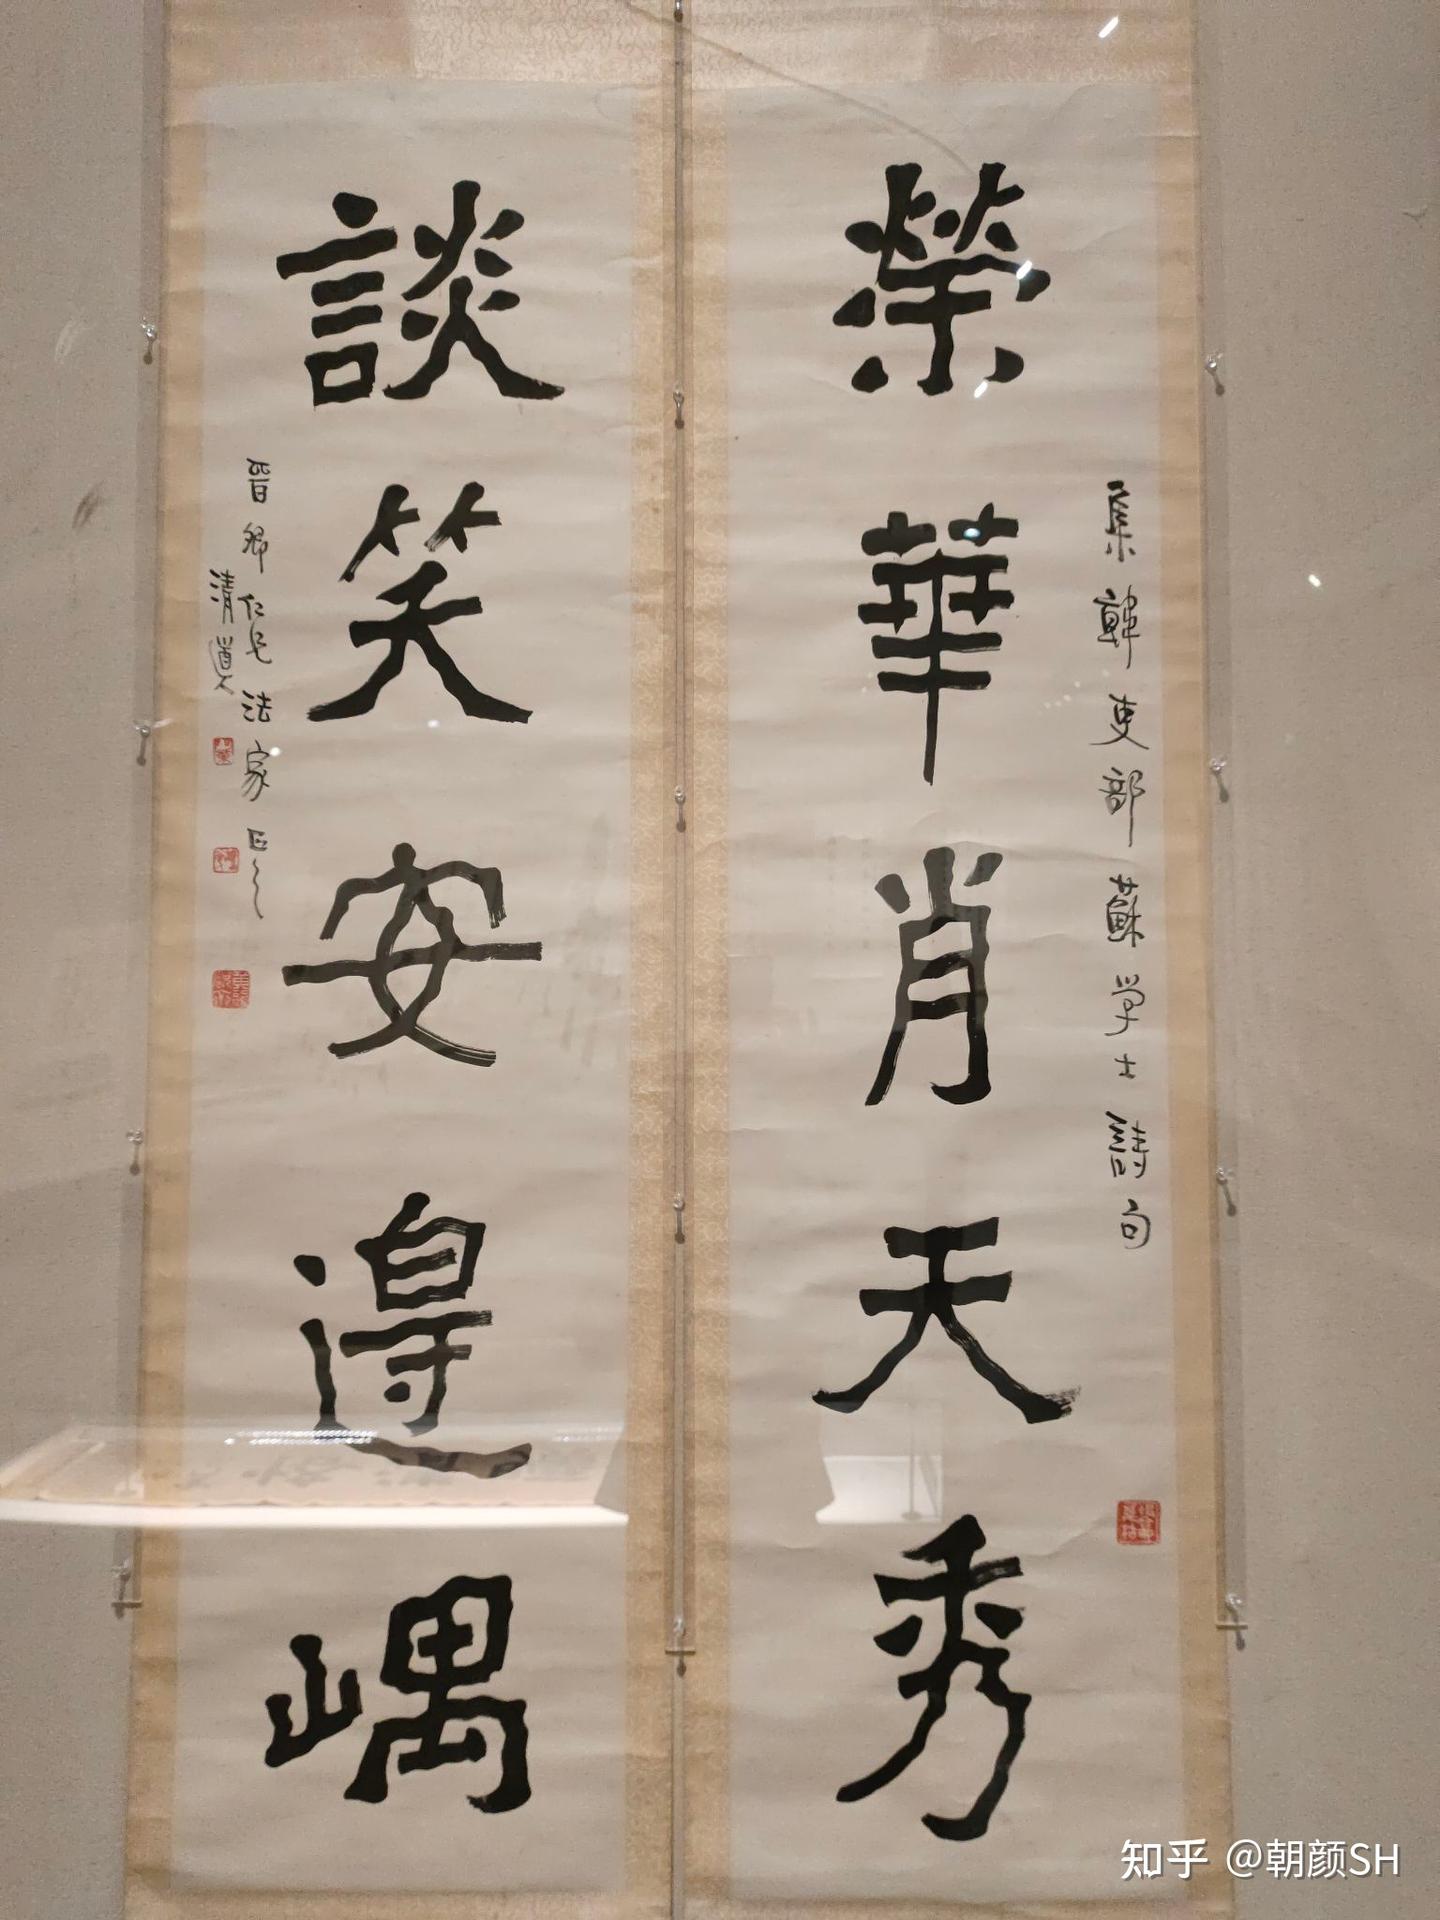 榮華肖天秀
集韓吏部蘇学士詩句
談笑安邊嵎
晋卿仁兄法家正之
清道人
知乎 @朝颜SH